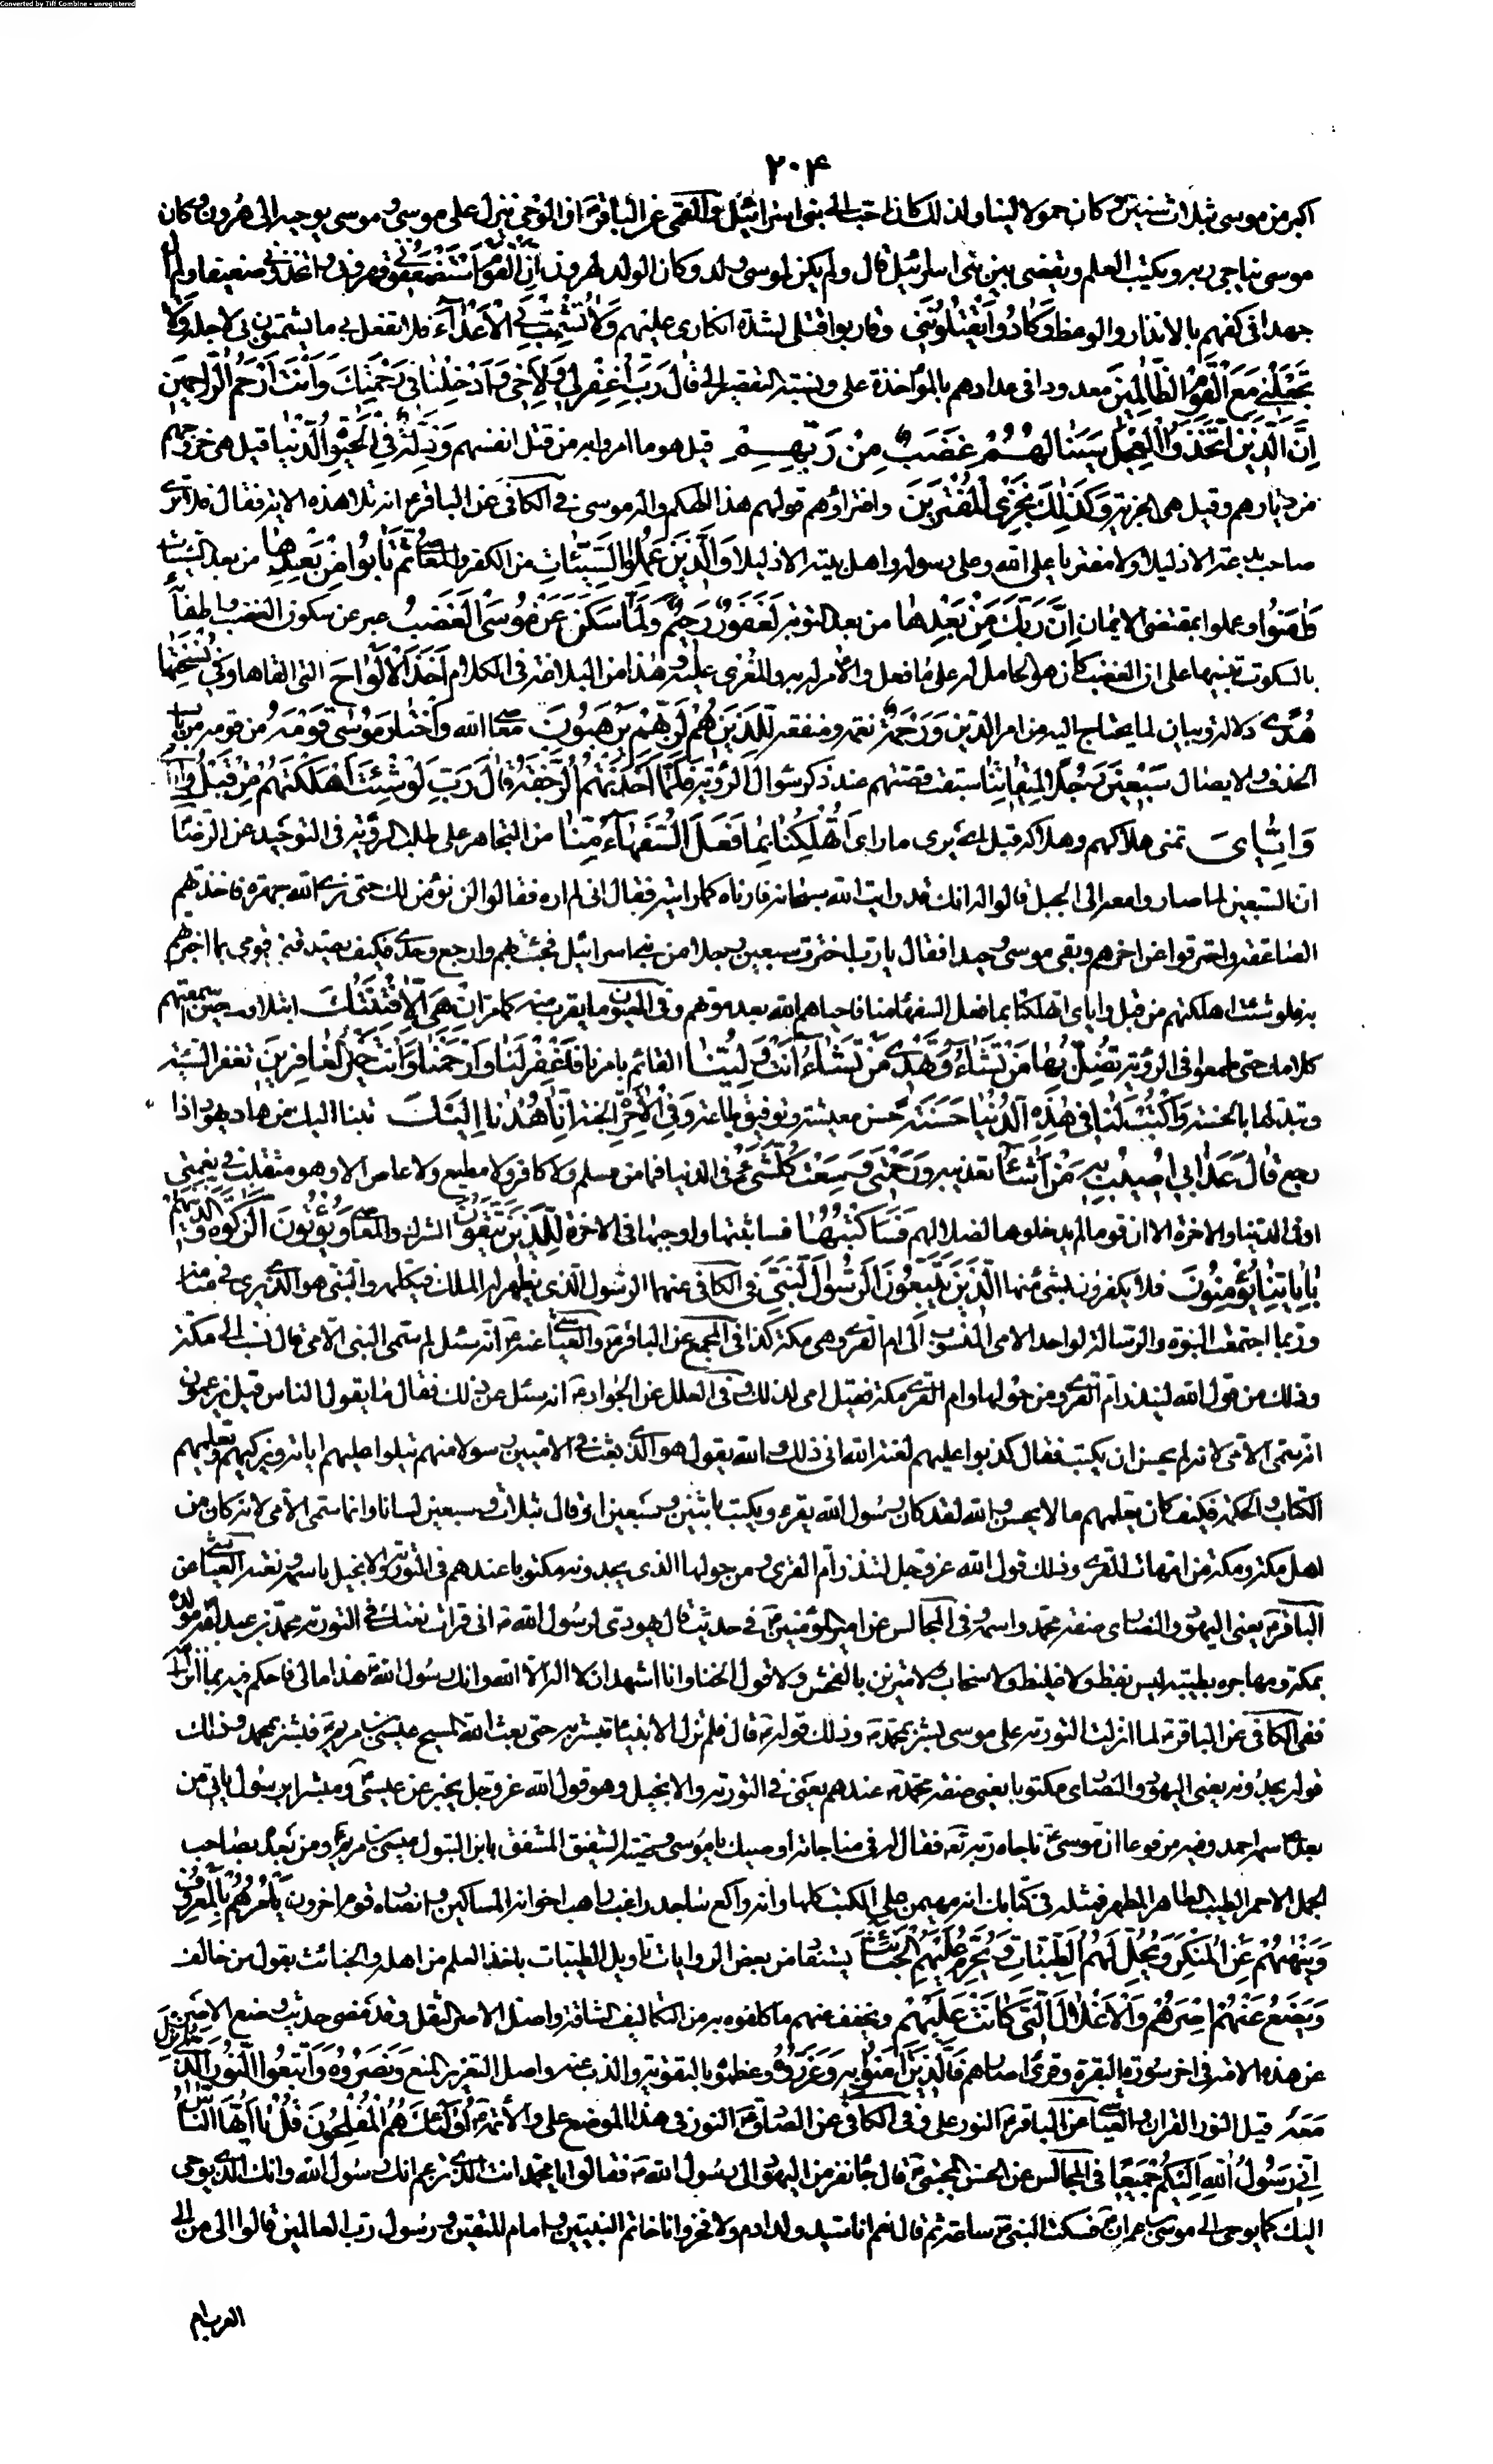 Converted by Tiff Combine - unregistered
٢٠۴
اكبر من موسى بثلاث سنين و كان حمولا لينا ولذلك كان احب الى بنى اسرائيل والقمى عن الباقر ان الوحى ينزل على موسى و موسى يوحيه الى هرون و كان
موسى يناجى ربه و يكتب العلم و يقضى بين بنى اسرائيل قال ولم يكن لموسى ولد و كان الولد لهرون ان القوم استضعفونى قهرونى و اتخذونى ضعيفا ولم ال
جهدا فى كفهم بالانذار والوعظ وكادوا يقتلوننى وقاربوا قتلى لشدة انكارى عليهم ولا تشمت بى الاعداء فلا تفعل بى ما يشتمون بى لاجله ولا
تجعلنى مع القوم الظالمين معدودا فى عدادهم بالمؤاخذة على ونسبة التقصير الى قال رب اغفر لى ولاخى وادخلنا فى رحمتك وانت ارحم الراحمين
ان الذين اتخذوا العجل سينالهم غضب من ربهم قيل هو ما امروا به من قتل انفسهم وذلة فى الحيوة الدنيا قيل هى خروجهم
من ديارهم وقيل هى الجزية وكذلك نجزى المفترين وافتراؤهم قولهم هذا الهكم واله موسى فى الكافى عن الباقر انه تلا هذه الاية فقال فلا ترى
صاحب بدعة الا ذليلا ولا مفتريا على الله وعلى رسوله واهل بيته الا ذليلا والذين عملوا السيئات من الكفر والمعاصى ثم تابوا من بعدها من بعد السيئات
وامنوا وعملوا بمقتضى الايمان ان ربك من بعدها من بعد التوبة لغفور رحيم ولما سكت عن موسى الغضب عبر عن سكون الغضب واطفائه
بالسكوت تنبيها على ان الغضب كان هو الحامل له على ما فعل والامر له به والمغرى عليه وهذا من البلاغة فى الكلام اخذ الالواح التى القاها وفى نسختها
هدى دلالة وبيان لما يحتاج اليه من امر الدين ورحمة نعمة ومنفعة للذين هم لربهم يرهبون معاصى الله واختار موسى قومه من قومه من باب
الحذف والايصال سبعين رجلا لميقاتنا سبقت قصتهم عند ذكر سؤال الرؤية فلما اخذتهم الرجفة قال رب لو شئت اهلكتهم من قبل
واياى تمنى هلاكهم وهلاكه قبل ان يرى ما راى اتهلكنا بما فعل السفهاء منا من التجاسر على طلب الرؤية فى التوحيد عن الرضا
ان السبعين لما صاروا معه الى الجبل قالوا له انك قد رايت الله سبحانه فارناه كما رايته فقال انى لم اره فقالوا لن نؤمن لك حتى نرى الله جهرة فاخذتهم
الصاعقة واحترقوا عن اخرهم وبقى موسى وحيدا فقال يا رب اخترت سبعين رجلا من بنى اسرائيل فجئت بهم وارجع وحدى فكيف يصدقنى قومى بما اخبرهم
به فلو شئت اهلكتهم من قبل واياى اتهلكنا بما فعل السفهاء منا فاحياهم الله بعد موتهم وفى العيون ما يقرب منه كما مر ان هى الا فتنتك ابتلاؤك حين اسمعتهم
كلامك حتى طمعوا فى الرؤية تضل بها من تشاء وتهدى من تشاء انت ولينا القائم بامرنا فاغفر لنا وارحمنا وانت خير الغافرين تغفر السيئة
وتبدلها بالحسنة واكتب لنا فى هذه الدنيا حسنة حسن معيشة وتوفيق طاعة وفى الاخرة الجنة انا هدنا اليك تبنا اليك من هاد يهود اذا
رجع قال عذابى اصيب به من اشاء تعذيبه ورحمتى وسعت كل شىء فى الدنيا فما من مسلم ولا كافر ولا مطيع ولا عاص الا وهو متقلب فى نعمتى
او فى الدنيا والاخرة الا ان قوما لم يدخلوها لضلالهم فساكتبها فساثبتها واوجبها فى الاخرة للذين يتقون الشرك والمعاصى ويؤتون الزكوة والذين هم
باياتنا يؤمنون فلا يكفرون بشىء منها الذين يتبعون الرسول النبى فى الكافى عنهما الرسول الذى يظهر له الملك فيكلمه والنبى هو الذى يرى فى منامه
وربما اجتمعت النبوة والرسالة لواحد الامى المنسوب الى ام القرى وهى مكة كذا فى المجمع عن الباقر والعياشى عنه انه سئل لم سمى النبى الامى قال نسب الى مكة
وذلك من قول الله لتنذر ام القرى ومن حولها وام القرى مكة فقيل امى لذلك وفى العلل عن الجواد انه سئل عن ذلك فقال ما يقول الناس قيل يزعمون
انه سمى الامى لانه لم يحسن ان يكتب فقال كذبوا عليهم لعنة الله انى ذلك والله يقول هو الذى بعث فى الاميين رسولا منهم يتلوا عليهم اياته ويزكيهم ويعلمهم
الكتاب والحكمة فكيف كان يعلمهم ما لا يحسن والله لقد كان رسول الله يقرء ويكتب باثنين وسبعين او قال بثلاث وسبعين لسانا وانما سمى الامى لانه كان من
اهل مكة ومكة من امهات القرى وذلك قول الله عز وجل لتنذر ام القرى ومن حولها الذى يجدونه مكتوبا عندهم فى التورية والانجيل باسمه ونعته العياشى عن
الباقر يعنى اليهود والنصارى صفة محمد واسمه وفى المجالس عن امير المؤمنين فى حديث قال يهودى لرسول الله انى قرات نعتك فى التورية محمد بن عبد الله مولده
بمكة ومهاجره بطيبة ليس بفظ ولا غليظ ولا سخاب ولا متزين بالفحش ولا قول الخنا وانا اشهد ان لا اله الا الله وانك رسول الله هذا مالى فاحكم فيه بما انزل الله
ففى الكافى عن الباقر لما انزلت التورية على موسى بشر بمحمد وذلك قوله قال فلم تزل الانبياء تبشر به حتى بعث الله المسيح عيسى بن مريم فبشر بمحمد وذلك
قوله يجدونه يعنى اليهود والنصارى مكتوبا يعنى صفة محمد عندهم يعنى فى التورية والانجيل وهو قول الله عز وجل يخبر عن عيسى ومبشرا برسول ياتى من
بعدى اسمه احمد وفيه مرفوعا ان موسى ناجاه ربه فقال له فى مناجاته اوصيك يا موسى وصية الشفيق المشفق بابن البتول عيسى بن مريم ومن بعده بصاحب
الجمل الاحمر الطيب الطاهر المطهر فمثله فى كتابك انه مهيمن على الكتب كلها وانه راكع ساجد راغب راهب اخوانه المساكين وانصاره قوم اخرون يامرهم بالمعروف
وينهيهم عن المنكر ويحل لهم الطيبات ويحرم عليهم الخبائث يستفاد من بعض الروايات تاويل الطيبات باخذ العلم من اهله والخبائث بقول من خالف
ويضع عنهم اصرهم والاغلال التى كانت عليهم ويخفف عنهم ما كلفوه به من التكاليف الشاقة واصل الاصر الثقل وقد مضى حديث وضع الاصر
عن هذه الامة فى اخر سورة البقرة وقرئ اصارهم فالذين امنوا به وعزروه وعظموه بالتقوية والذب عنه واصل التعزير المنع ونصروه واتبعوا النور الذى انزل
معه قيل النور القران والعياشى عن الباقر النور على وفى الكافى عن الصادق النور فى هذا الموضع على والائمة اولئك هم المفلحون قل يا ايها الناس
انى رسول الله اليكم جميعا فى المجالس عن الحسن المجتبى قال جاء نفر من اليهود الى رسول الله فقالوا يا محمد انت الذى تزعم انك رسول الله وانك الذى يوحى
اليك كما يوحى الى موسى بن عمران فسكت النبى ساعة ثم قال نعم انا سيد ولد ادم ولا فخر وانا خاتم النبيين وامام المتقين ورسول رب العالمين قالوا الى من الى
العرب ام